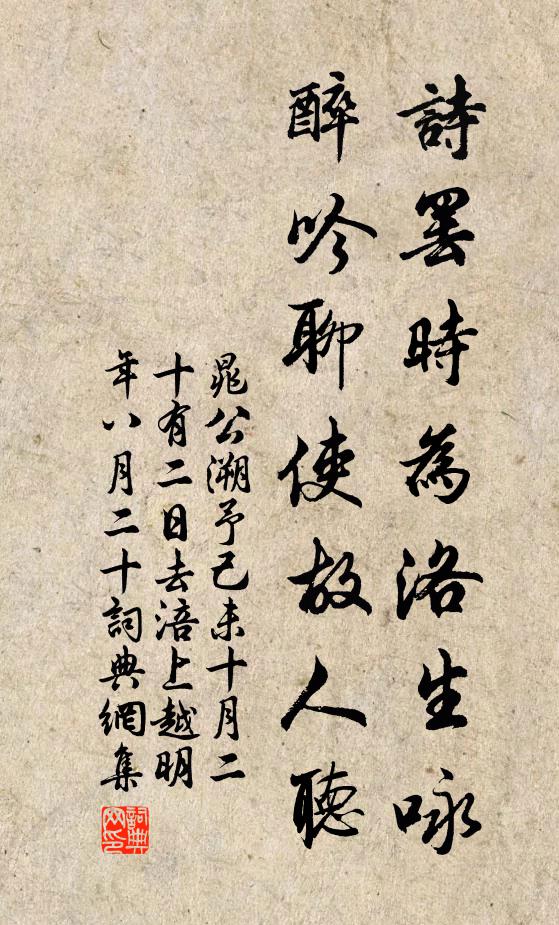 詩罷時為洛生咏
醉吟聊使故人聽
晁公溯予己未十月二
十有二日去涪上越明
年八月二十詞典網集
詞典网印